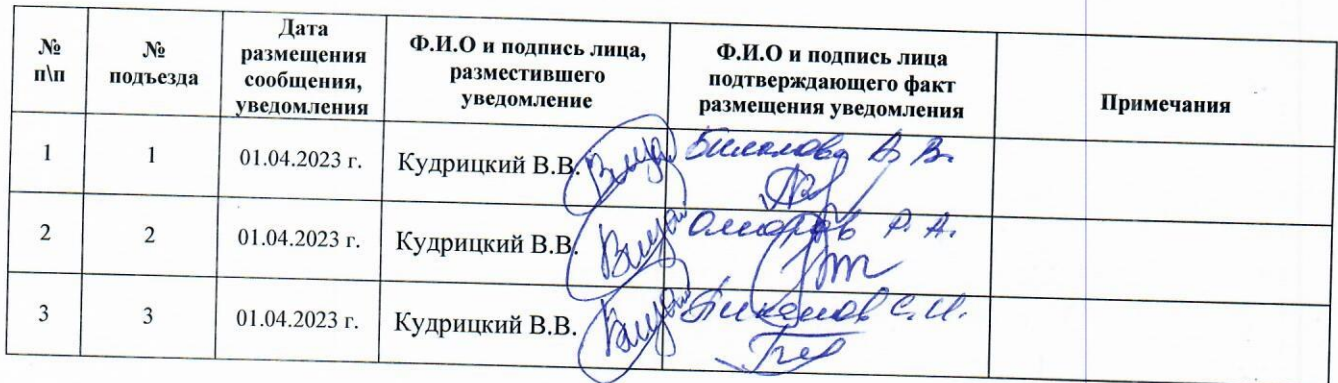 № п\п
№ подъезда
Дата размещения сообщения, уведомления
Ф.И.О и подпись лица, разместившего уведомление
Ф.И.О и подпись лица подтверждающего факт размещения уведомления
Примечания
1 1 01.04.2023 г. Кудрицкий В.В. А. В.
2 2 01.04.2023 г. Кудрицкий В.В. Омаров Р. А.
3 3 01.04.2023 г. Кудрицкий В.В. С. И.